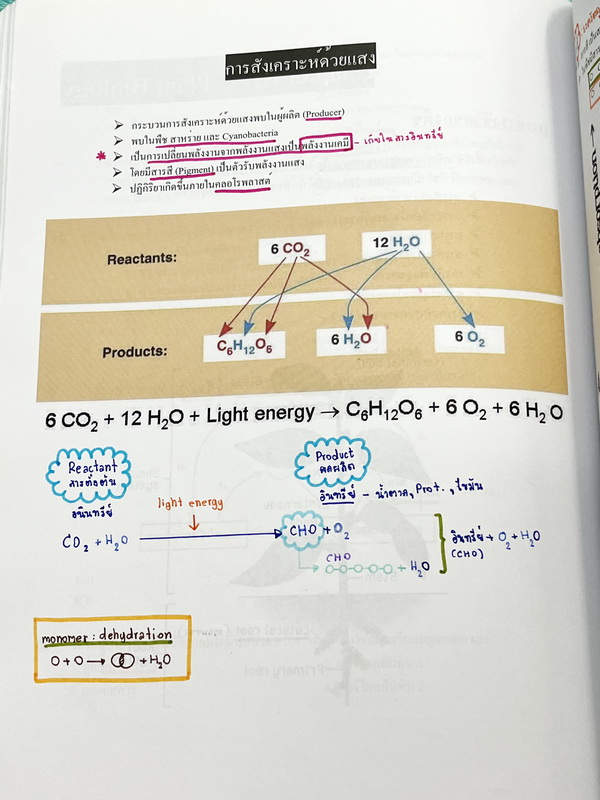 การสังเคราะห์ด้วยแสง
➤ กระบวนการสังเคราะห์ด้วยแสงพบในผู้ผลิต (Producer)
➤ พบในพืช สาหร่าย และ Cyanobacteria
* ➤ เป็นการเปลี่ยนพลังงานจากพลังงานแสงเป็นพลังงานเคมี - เก็บในสารอินทรีย์
➤ โดยมีสารสี (Pigment) เป็นตัวรับพลังงานแสง
➤ ปฏิกิริยาเกิดขึ้นภายในคลอโรพลาสต์
Reactants: 6 CO₂ 12 H₂O
Products: C₆H₁₂O₆ 6 H₂O 6 O₂
6 CO₂ + 12 H₂O + Light energy → C₆H₁₂O₆ + 6 O₂ + 6 H₂O
Reactant
สารตั้งต้น
Product
ผลผลิต
อนินทรีย์
อินทรีย์ - น้ำตาล, Prot., ไขมัน
light energy
CO₂ + H₂O → CHO + O₂
CHO
+ H₂O
อินทรีย์ + O₂ + H₂O
(CHO)
monomer : dehydration
O + O → + H₂O